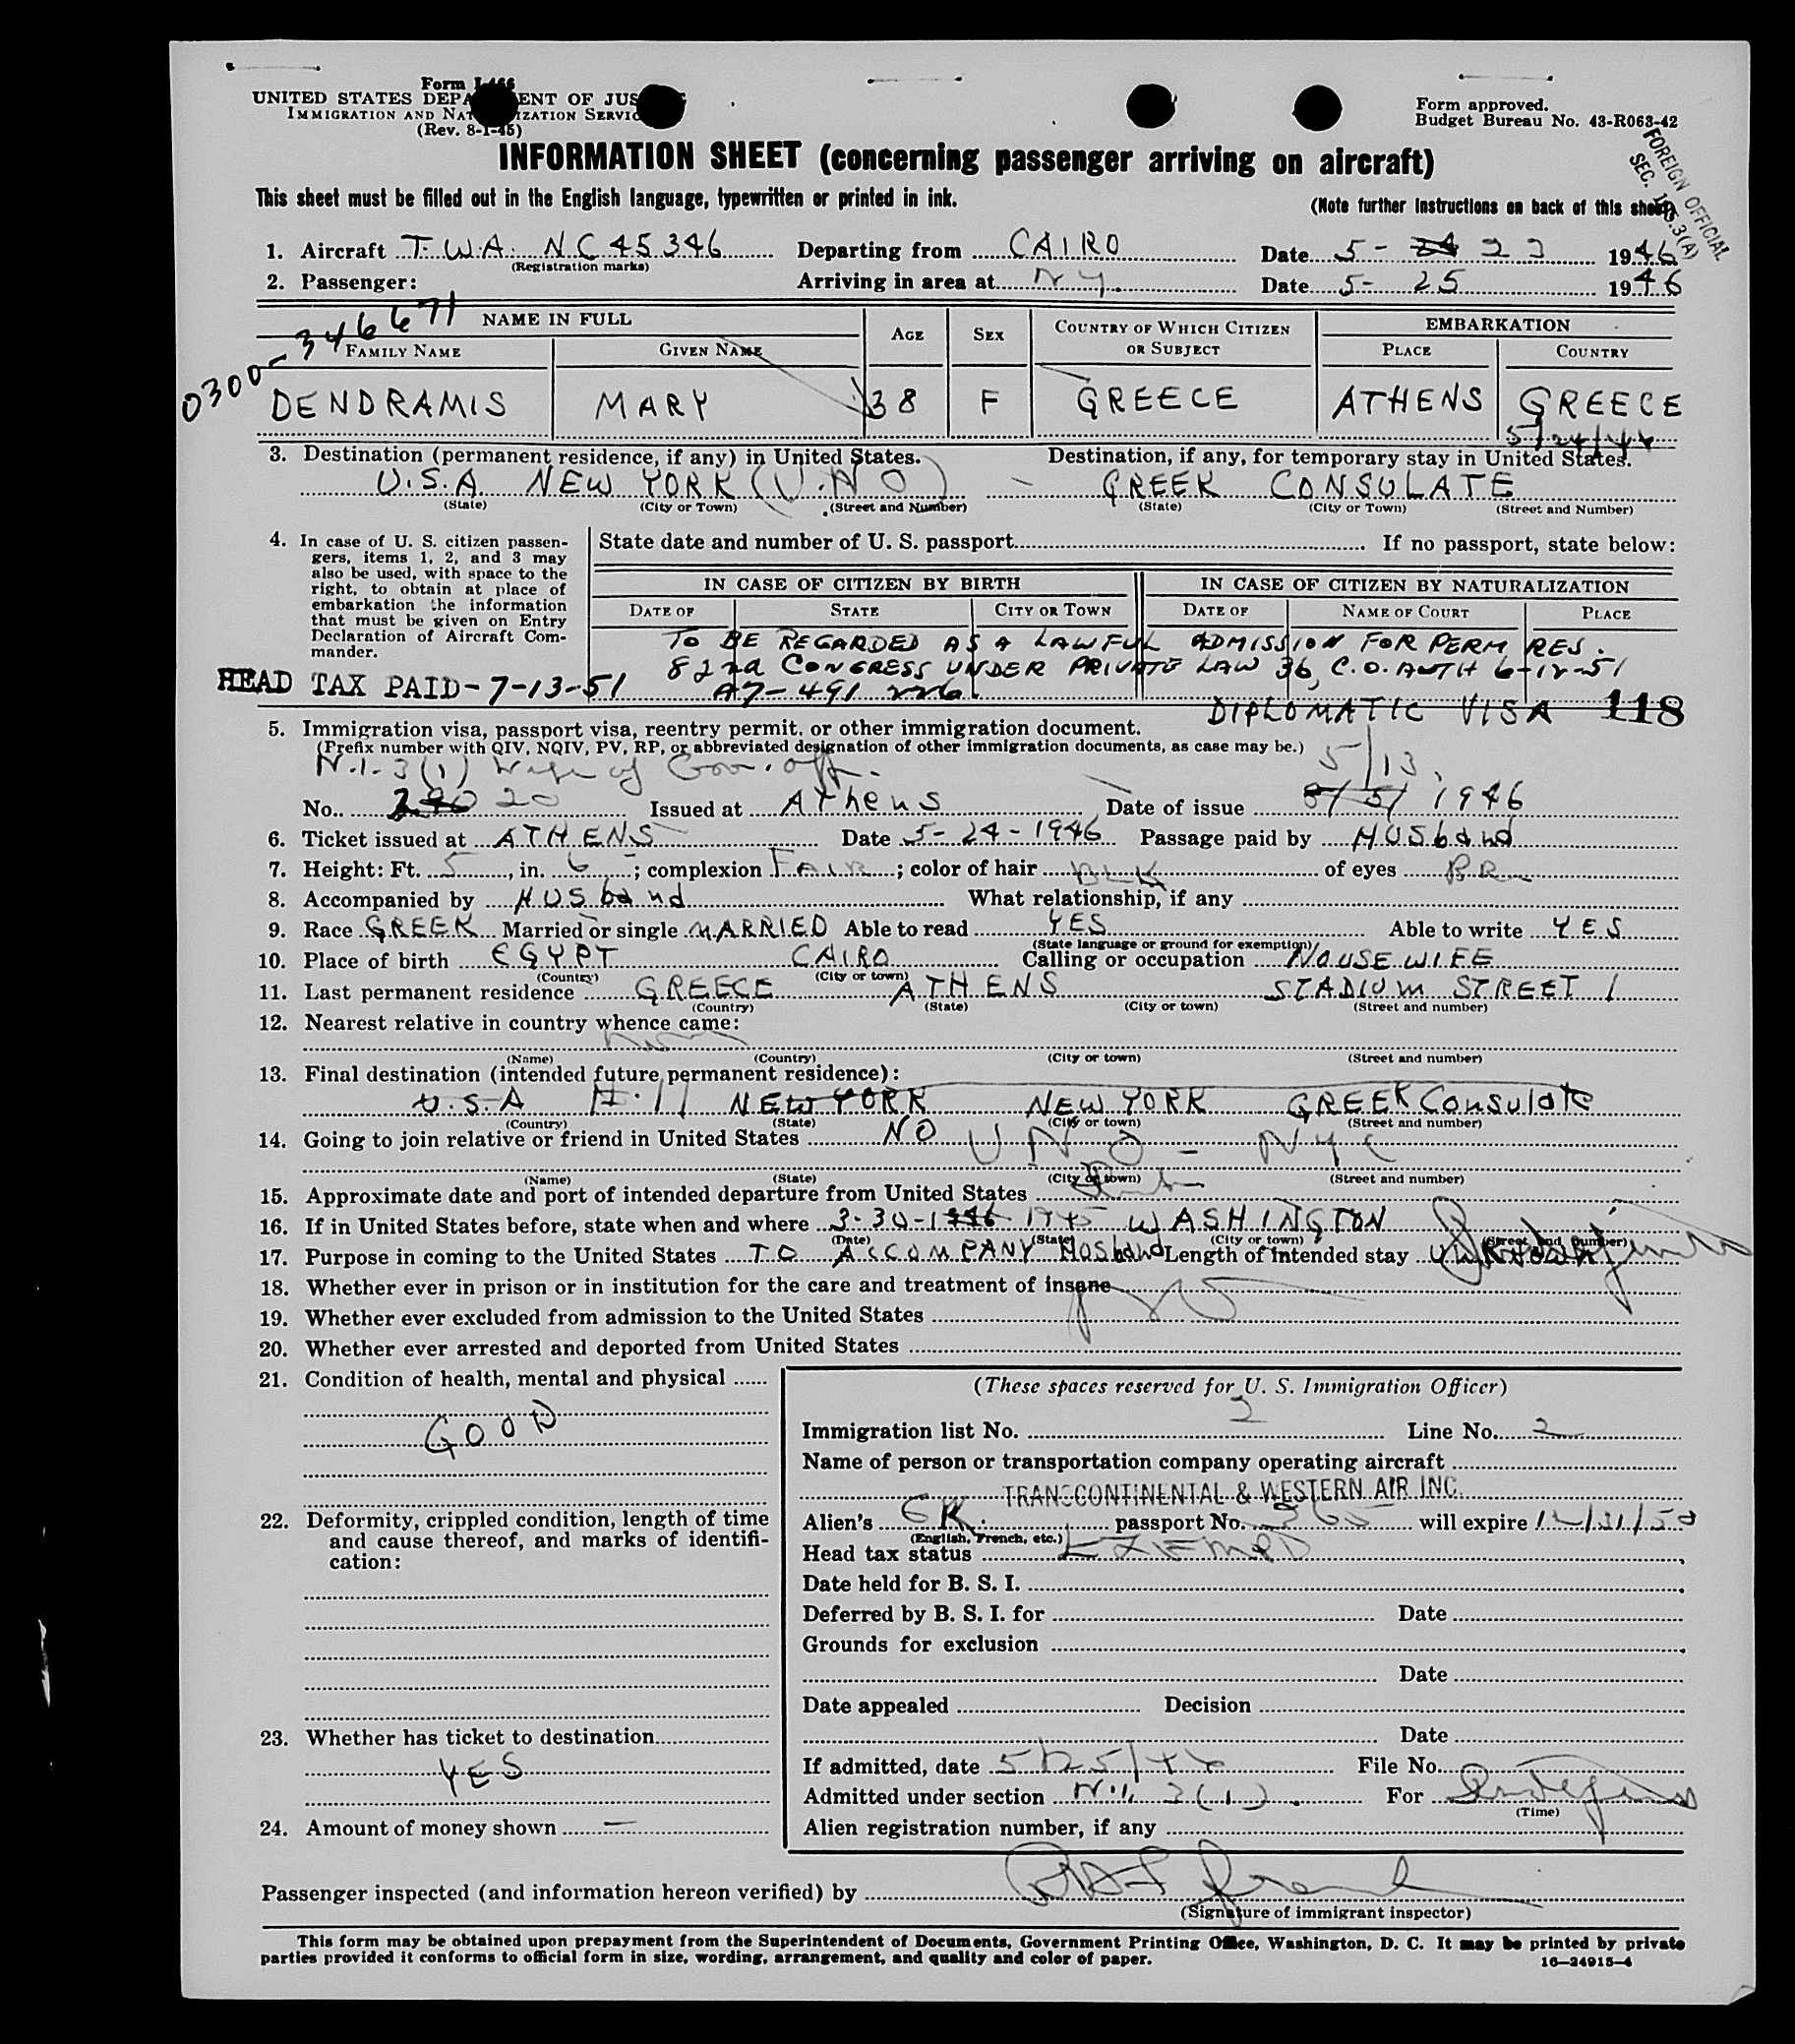 Form I-466
UNITED STATES DEPARTMENT OF JUSTICE
IMMIGRATION AND NATURALIZATION SERVICE
(Rev. 8-1-45)
Form approved.
Budget Bureau No. 43-R063-42
FOREIGN OFFICIAL
SEC.
INFORMATION SHEET (concerning passenger arriving on aircraft)
This sheet must be filled out in the English language, typewritten or printed in ink.
(Note further instructions on back of this sheet)
1. Aircraft T.W.A. NC 45346 Departing from CAIRO Date 5- 23 1946
(Registration marks)
2. Passenger: Arriving in area at N.Y. Date 5- 25 1946
0300-346671
NAME IN FULL AGE SEX COUNTRY OF WHICH CITIZEN OR SUBJECT EMBARKATION
FAMILY NAME GIVEN NAME PLACE COUNTRY
DENDRAMIS MARY 38 F GREECE ATHENS GREECE
5/24/46
3. Destination (permanent residence, if any) in United States. Destination, if any, for temporary stay in United States.
U.S.A. NEW YORK (U.N.O) GREEK CONSULATE
(State) (City or Town) (Street and Number) (State) (City or Town) (Street and Number)
4. In case of U. S. citizen passen-
gers, items 1, 2, and 3 may
also be used, with space to the
right, to obtain at place of
embarkation the information
that must be given on Entry
Declaration of Aircraft Com-
mander.
State date and number of U. S. passport If no passport, state below:
IN CASE OF CITIZEN BY BIRTH IN CASE OF CITIZEN BY NATURALIZATION
DATE OF STATE CITY OR TOWN DATE OF NAME OF COURT PLACE
TO BE REGARDED AS A LAWFUL ADMISSION FOR PERM RES.
82nd CONGRESS UNDER PRIVATE LAW 36, C.O. AUTH 6-18-51
HEAD TAX PAID-7-13-51 A7-491 226
DIPLOMATIC VISA 118
5. Immigration visa, passport visa, reentry permit, or other immigration document.
(Prefix number with QIV, NQIV, PV, RP, or abbreviated designation of other immigration documents, as case may be.)
N.I. 3(1) Wife of Gov. off. 5/13,
No. 20 Issued at Athens Date of issue 1946
6. Ticket issued at ATHENS Date 5-24-1946 Passage paid by HUSband
7. Height: Ft. 5, in. 6; complexion FAIR; color of hair BLK of eyes BR
8. Accompanied by HUSband What relationship, if any
9. Race GREEK Married or single MARRIED Able to read YES Able to write YES
(State language or ground for exemption)
10. Place of birth EGYPT CAIRO Calling or occupation HOUSEWIFE
(Country) (City or town)
11. Last permanent residence GREECE ATHENS STADIUM STREET 1
(Country) (State) (City or town) (Street and number)
12. Nearest relative in country whence came:
(Name) (Country) (City or town) (Street and number)
13. Final destination (intended future permanent residence):
U.S.A NEW YORK NEW YORK GREEK Consulate
(Country) (State) (City or town) (Street and number)
14. Going to join relative or friend in United States NO UNO - NYC
(Name) (State) (City or town) (Street and number)
15. Approximate date and port of intended departure from United States
16. If in United States before, state when and where 3-30- 1945 WASHINGTON
(Date) (State) (City or town) (Street and number)
17. Purpose in coming to the United States TO ACCOMPANY Husband Length of intended stay
18. Whether ever in prison or in institution for the care and treatment of insane
19. Whether ever excluded from admission to the United States
20. Whether ever arrested and deported from United States
21. Condition of health, mental and physical
GOOD
22. Deformity, crippled condition, length of time
and cause thereof, and marks of identifi-
cation:
23. Whether has ticket to destination
YES
24. Amount of money shown —
(These spaces reserved for U. S. Immigration Officer)
Immigration list No. 2 Line No. 2
Name of person or transportation company operating aircraft
TRANSCONTINENTAL & WESTERN AIR INC.
Alien's GK. passport No. 365 will expire 12/31/50
(English, French, etc.)
Head tax status EXEMPD
Date held for B. S. I.
Deferred by B. S. I. for Date
Grounds for exclusion
Date
Date appealed Decision
Date
If admitted, date 5/25/46 File No.
Admitted under section N.I. 3(1). For
(Time)
Alien registration number, if any
Passenger inspected (and information hereon verified) by
(Signature of immigrant inspector)
This form may be obtained upon prepayment from the Superintendent of Documents, Government Printing Office, Washington, D. C. It may be printed by private
parties provided it conforms to official form in size, wording, arrangement, and quality and color of paper.
16—24915-4